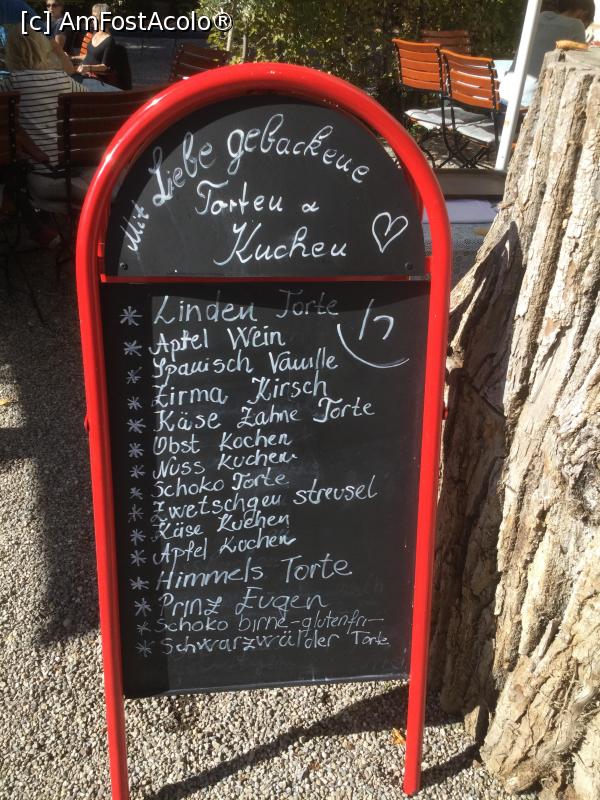 [c] AmFostAcolo®
Mit Liebe gebackene
Torten &
Kuchen
* Linden Torte
* Apfel Wein
* Spanisch Vanille
* Zirma Kirsch
* Käse Zahne Torte
* Obst Kochen
* Nuss Kuchen
* Schoko Torte
* Zwetschgen streusel
* Käse Kuchen
* Apfel Kuchen
* Himmels Torte
* Prinz Eugen
* Schoko birne-glutenfri-
* Schwarzwälder Torte